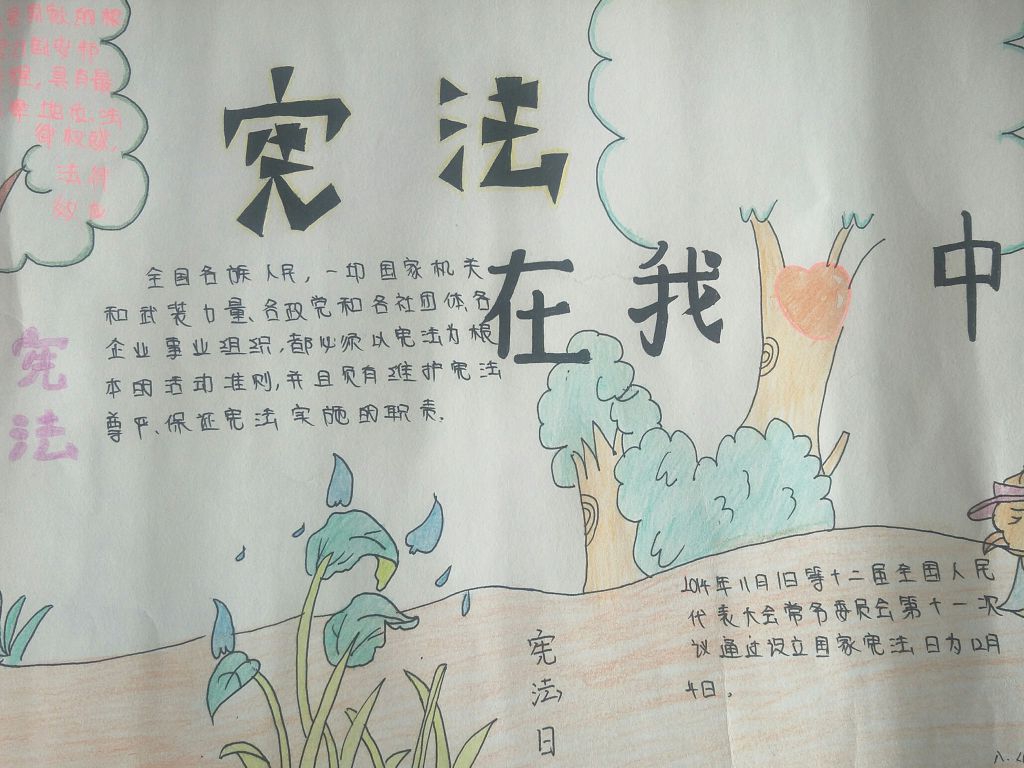 的根
具有最
地位、法
律权威,
法律
效力
宪法
在我中
全国各族人民,一切国家机关
和武装力量、各政党和各社团体、各
企业事业组织,都必须以宪法为根
本的活动准则,并且负有维护宪法
尊严、保证宪法实施的职责.
宪法
2014年11月1日第十二届全国人民
代表大会常务委员会第十一次
议通过设立国家宪法日为12月
4日。
宪法日
八.